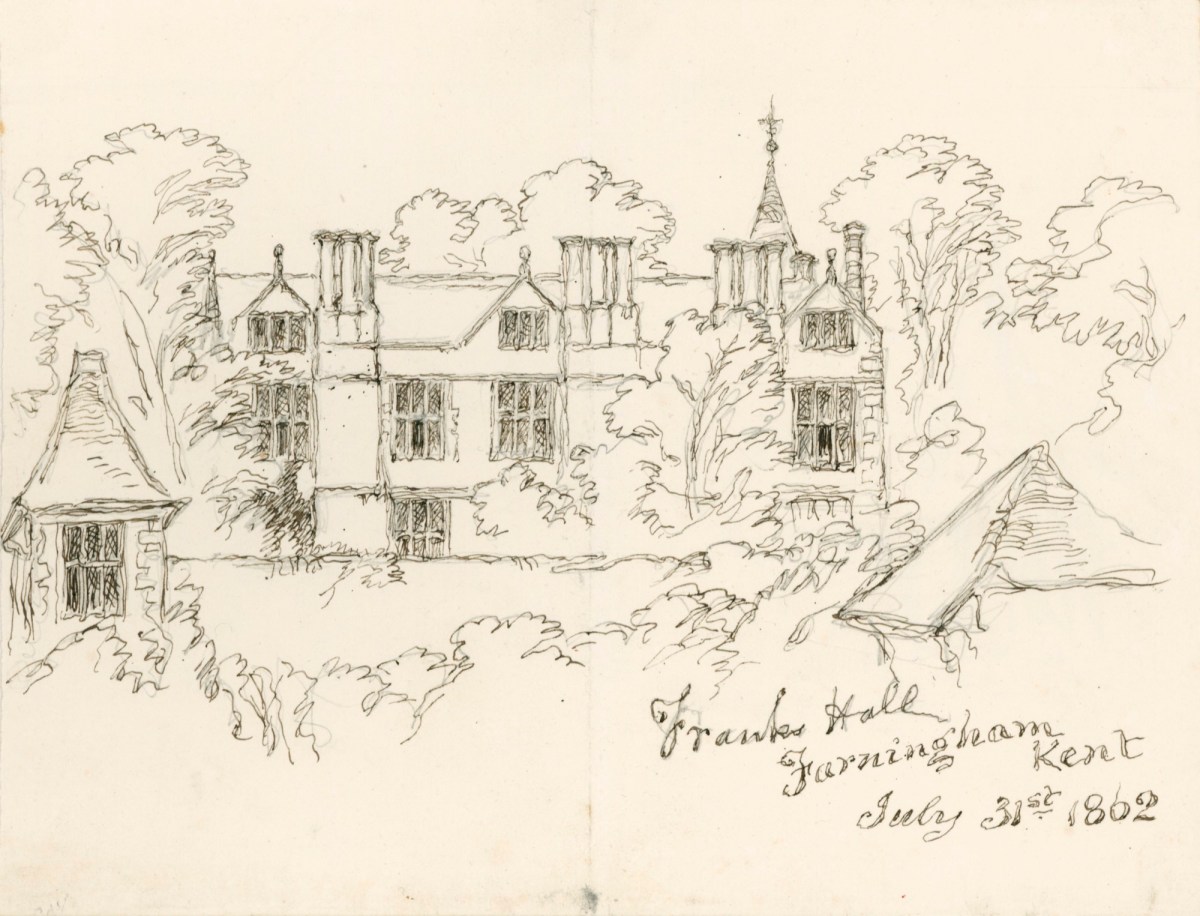 Franks Hall
Farningham
Kent
July 31st 1862